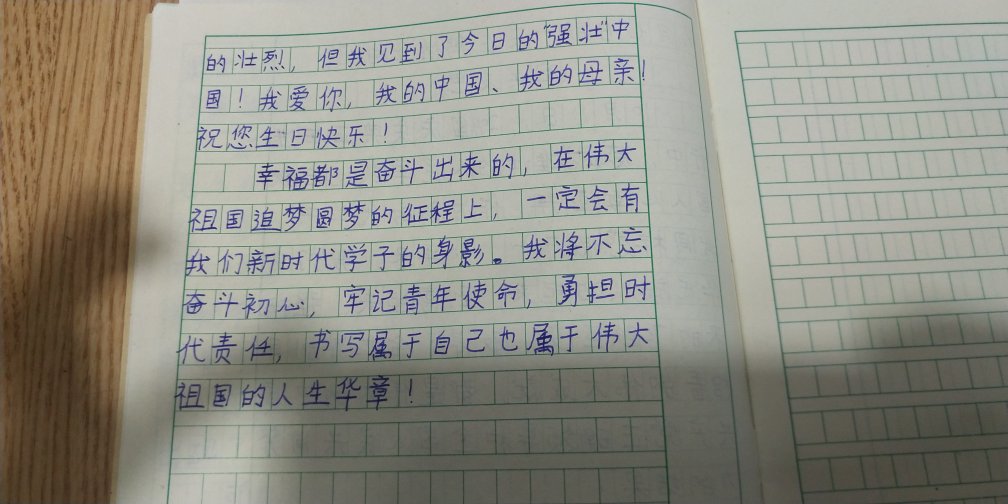 的壮烈，但我见到了今日的“强壮”中
国！我爱你，我的中国、我的母亲！
祝您生日快乐！
幸福都是奋斗出来的，在伟大
祖国追梦圆梦的征程上，一定会有
我们新时代学子的身影。我将不忘
奋斗初心，牢记青年使命，勇担时
代责任，书写属于自己也属于伟大
祖国的人生华章！